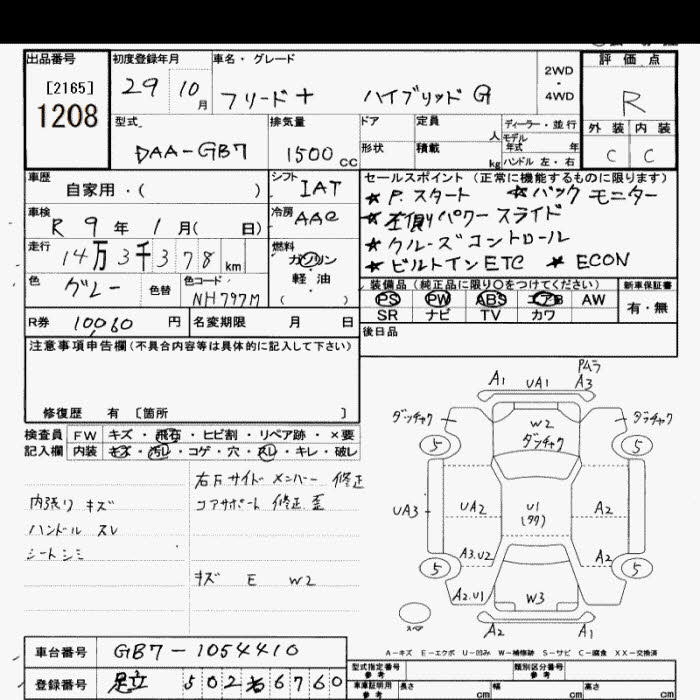 出品番号 初度登録年月 車名・グレード 評価点
[2165] 29 10月 フリード＋ ハイブリッド G 2WD・4WD R
1208
型式 DAA-GB7 排気量 1500cc ドア 定員 人 ディーラー・並行 外装 内装
形状 積載 kg モデル年式 年 ハンドル 左・右 C C
車歴 自家用・( ) シフト IAT セールスポイント（正常に機能するものに限ります）
★ P.スタート ★バック モニター
車検 R 9年 1月( 日) 冷房 AAC ★ 左側パワースライド
走行 14万3千378km 燃料 ガソリン 軽油 ( ) ★ クルーズコントロール
★ ビルトインETC ★ ECON
色 グレー 色替 色コード NH797M 装備品（純正品に限り○をつけてください） 新車保証書
PS PW ABS エアB AW 有・無
SR ナビ TV カワ
R券 10060円 名変期限 月 日 後日品
注意事項申告欄（不具合内容等は具体的に記入して下さい）
修復歴 有 〔箇所 〕
検査員 FW キズ・飛石・ヒビ割・リペア跡・×要
記入欄 内装 キズ・汚レ・コゲ・穴・スレ・キレ・破レ
右Fサイドメンバー 修正
内張り キズ コアサポート 修正 歪
ハンドル スレ
シートシミ
キズ E W2
PMラ
A1 UA1 A3
ダッチャク W2 ダッチャク
ダッチャク
5 5
UA3 UA2 U1 A2
(ワワ)
A3.U2 A2
5 5
A2.U1 W3
スペア A2 A1
A－キズ E－エクボ U－凹み W－補修跡 S－サビ C－腐食 XX－交換済
車台番号 GB7-1054410 型式指定番号 参考 類別区分番号 参考
登録番号 足立 502 6760 車庫証明用 参考 長さ cm 幅 cm 高さ cm